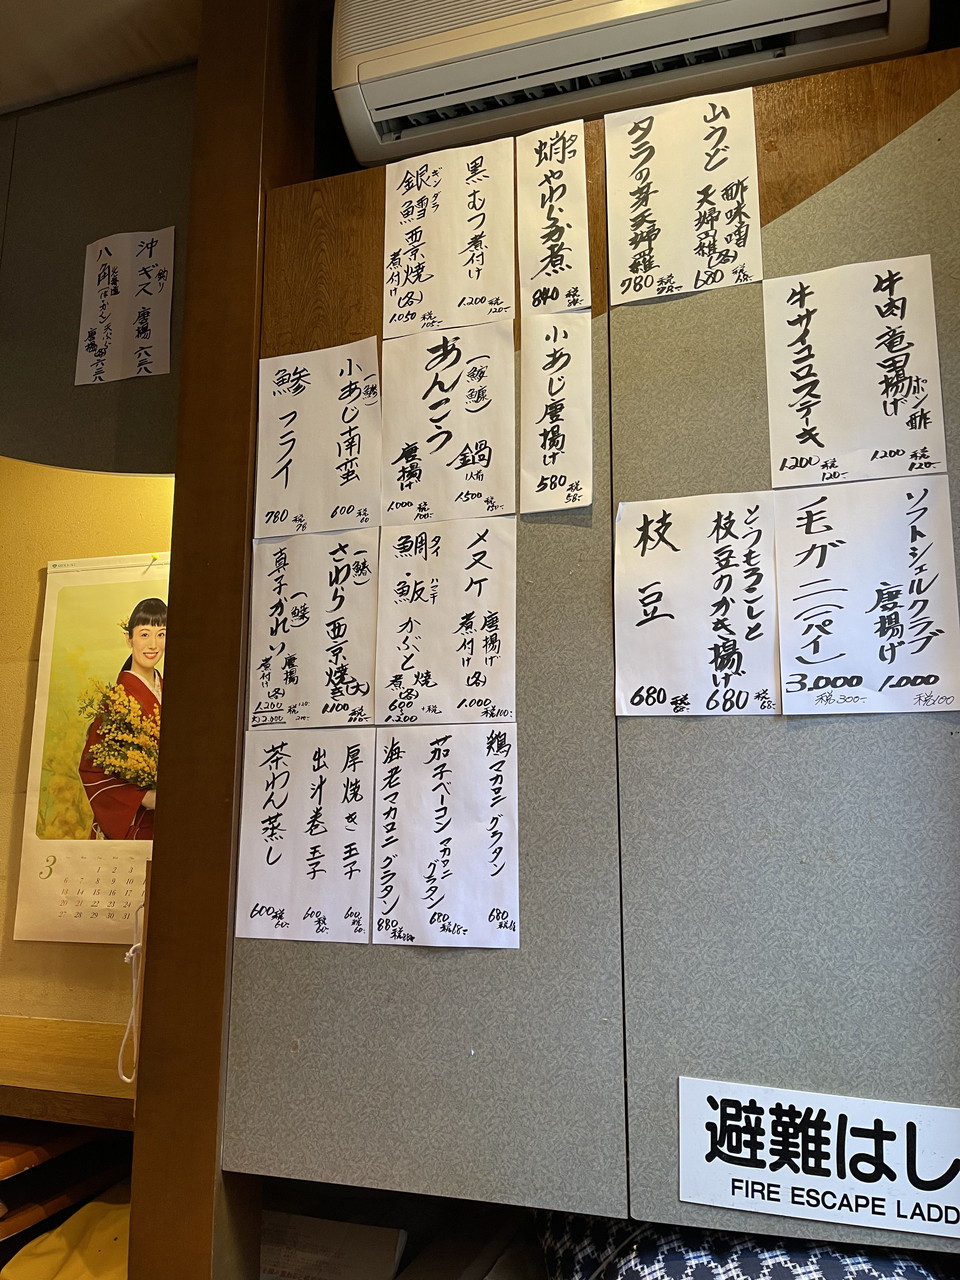 山うど
酢味噌
天婦羅(各)
680 税68.-
タラの芽天婦羅
780 税78.-
蛸やわらか煮
タコ
840 税84.-
黒むつ煮付け
1.200 税120.-
銀鱈西京焼
ギンダラ
煮付け(各)
1.050 税105.-
牛肉竜田揚げ
ポン酢
1.200 税120.-
牛サイコロステーキ
1.200 税120.-
小あじ唐揚げ
580 税58.-
あんこう
(鮟鱇)
鍋
1人前
1500 税150.-
唐揚げ
1.000 税100.-
小あじ南蛮
(鯵)
600 税60
鯵フライ
780 税78
沖ギス唐揚 六三八
釣り
八角
北海道
(はっかく)
天ぷら
唐揚
六三八
ソフトシェルクラブ
唐揚げ
1.000
税100
毛ガニ(パイ)
3.000
税300.-
とうもろこしと
枝豆のかき揚げ
680 税68.-
枝豆
680 税68.-
メヌケ
唐揚げ
煮付け(各)
1.000
税100.-
鯛・魬かぶと
タイ
ハマチ
焼
煮(各)
600
1.200
+税
さわら西京焼き(大)
(鰆)
1.100 税110.-
真子かれい
(鰈)
唐揚
煮付け(各)
1.200 税120
大)2.000 210.-
鶏マカロニグラタン
680 税68
茄子ベーコンマカロニグラタン
680 税68.-
海老マカロニグラタン
880 税88
厚焼き玉子
600 税60.-
出汁巻玉子
600 税60.-
茶わん蒸し
600 税60.-
3
1 2 3
6 7 8 9 10
13 14 15 16 17
20 21 22 23 24
27 28 29 30 31
避難はし
FIRE ESCAPE LADD